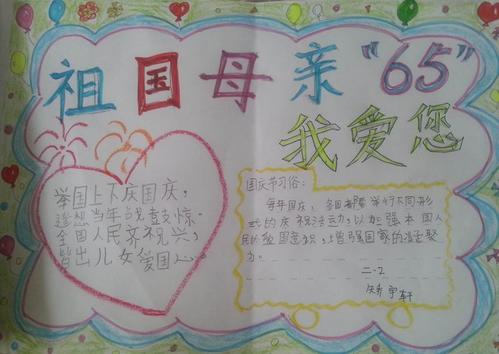 祖国母亲“65”
我爱您
举国上下庆国庆,
遥想当年
全国人民齐
出儿女爱国心。
国庆节习俗:
每年国庆,各国都要举行不同形
式的庆祝活动,以加强本国人
民的爱国意识,增强国家的凝聚
力。
二.2
宇轩